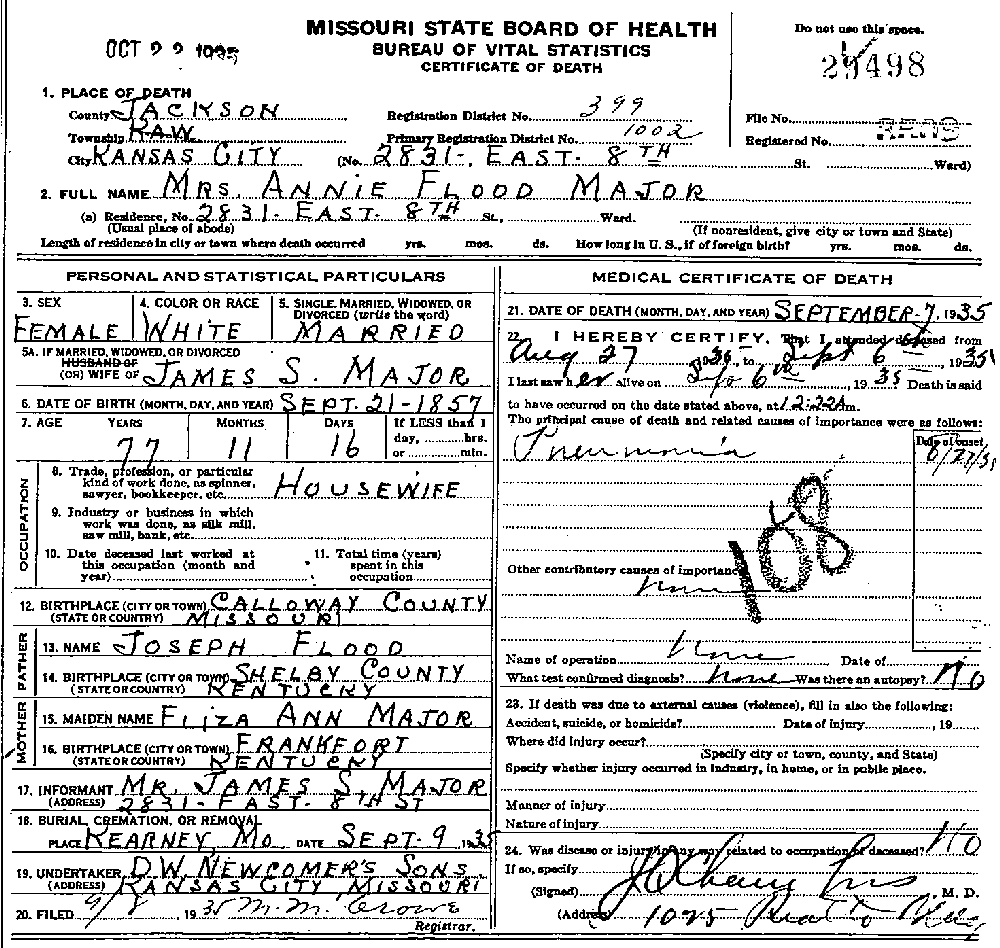 MISSOURI STATE BOARD OF HEALTH
BUREAU OF VITAL STATISTICS
CERTIFICATE OF DEATH
OCT 22 1935
Do not use this space.
29498
1. PLACE OF DEATH
County JACKSON
Registration District No. 399
File No.
Township KAW
Primary Registration District No. 1002
Registered No.
City KANSAS CITY (No. 2831-. EAST. 8TH St. Ward)
2. FULL NAME MRS. ANNIE FLOOD MAJOR
(a) Residence, No. 2831- EAST. 8TH St., Ward.
(Usual place of abode) (If nonresident, give city or town and State)
Length of residence in city or town where death occurred yrs. mos. ds. How long in U. S., if of foreign birth? yrs. mos. ds.
PERSONAL AND STATISTICAL PARTICULARS
3. SEX FEMALE
4. COLOR OR RACE WHITE
5. SINGLE, MARRIED, WIDOWED, OR DIVORCED (write the word) MARRIED
5A. IF MARRIED, WIDOWED, OR DIVORCED
HUSBAND OF
(OR) WIFE OF JAMES S. MAJOR
6. DATE OF BIRTH (MONTH, DAY, AND YEAR) SEPT. 21-1857
7. AGE YEARS MONTHS DAYS If LESS than 1
77 11 16 day, hrs.
or min.
OCCUPATION
8. Trade, profession, or particular
kind of work done, as spinner,
sawyer, bookkeeper, etc. HOUSEWIFE
9. Industry or business in which
work was done, as silk mill,
saw mill, bank, etc.
10. Date deceased last worked at
this occupation (month and
year)
11. Total time (years)
spent in this
occupation
12. BIRTHPLACE (CITY OR TOWN) CALLOWAY COUNTY
(STATE OR COUNTRY) MISSOURI
FATHER
13. NAME JOSEPH FLOOD
14. BIRTHPLACE (CITY OR TOWN) SHELBY COUNTY
(STATE OR COUNTRY) KENTUCKY
MOTHER
15. MAIDEN NAME ELIZA ANN MAJOR
16. BIRTHPLACE (CITY OR TOWN) FRANKFORT
(STATE OR COUNTRY) KENTUCKY
17. INFORMANT MR. JAMES S. MAJOR
(ADDRESS) 2831- EAST- 8TH ST
18. BURIAL, CREMATION, OR REMOVAL
PLACE KEARNEY, MO DATE SEPT. 9 1935
19. UNDERTAKER D.W. NEWCOMER'S SONS.
(ADDRESS) KANSAS CITY MISSOURI
20. FILED 9/8 1935 M.M. Crowe
Registrar.
MEDICAL CERTIFICATE OF DEATH
21. DATE OF DEATH (MONTH, DAY, AND YEAR) SEPTEMBER-7, 1935
22. I HEREBY CERTIFY, That I attended deceased from
Aug 27 1935, to Sept 6th, 1935
I last saw her alive on Sep 6th, 1935 Death is said
to have occurred on the date stated above, at 12:22A m.
The principal cause of death and related causes of importance were as follows:
Date of onset
Pneumonia
168
Other contributory causes of importance:
None
Name of operation None Date of
What test confirmed diagnosis? None Was there an autopsy? No
23. If death was due to external causes (violence), fill in also the following:
Accident, suicide, or homicide? Date of injury , 19
Where did injury occur?
(Specify city or town, county, and State)
Specify whether injury occurred in industry, in home, or in public place.
Manner of injury
Nature of injury
24. Was disease or injury in any way related to occupation of deceased? No
If so, specify
(Signed) , M. D.
(Address) 1025